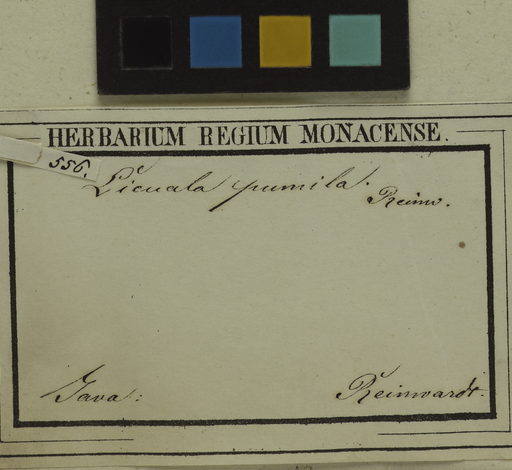 HERBARIUM REGIUM MONACENSE.
556.
Licuala pumila.
Reinw.
Java:
Reinwardt.